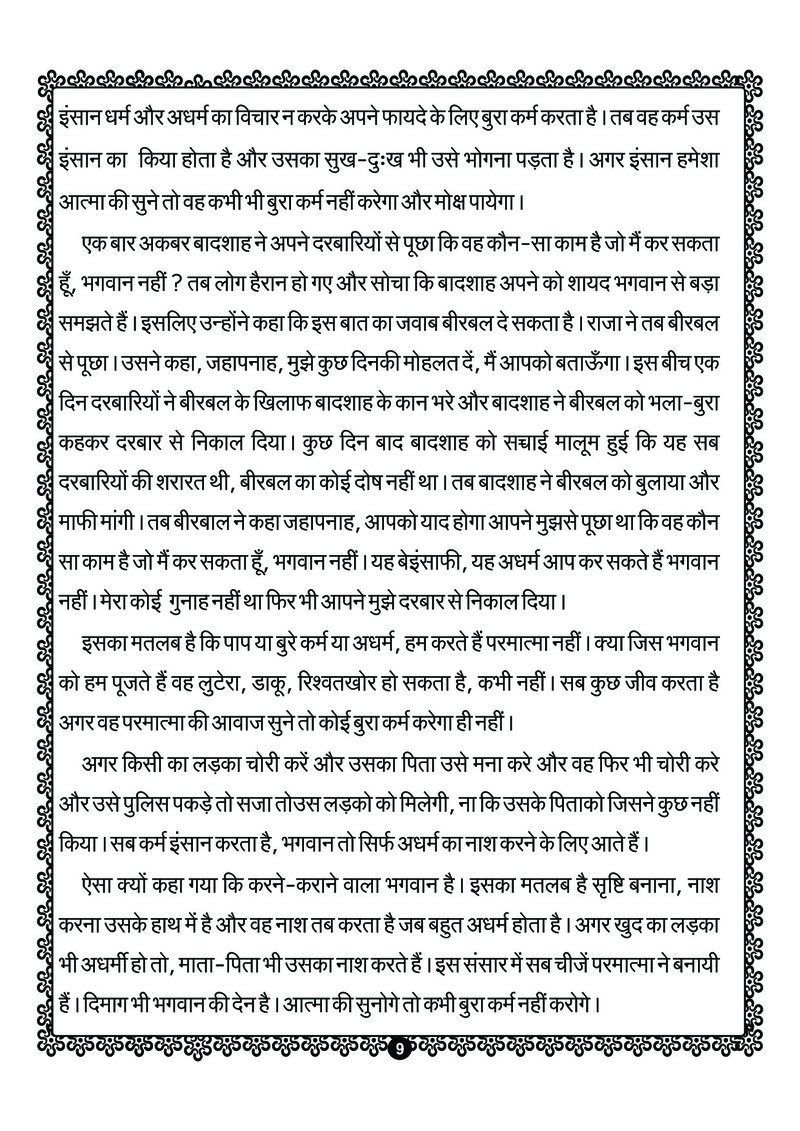 इंसान धर्म और अधर्म का विचार न करके अपने फायदे के लिए बुरा कर्म करता है । तब वह कर्म उस
इंसान का किया होता है और उसका सुख-दुःख भी उसे भोगना पड़ता है । अगर इंसान हमेशा
आत्मा की सुने तो वह कभी भी बुरा कर्म नहीं करेगा और मोक्ष पायेगा ।
एक बार अकबर बादशाह ने अपने दरबारियों से पूछा कि वह कौन-सा काम है जो मैं कर सकता
हूँ, भगवान नहीं ? तब लोग हैरान हो गए और सोचा कि बादशाह अपने को शायद भगवान से बड़ा
समझते हैं । इसलिए उन्होंने कहा कि इस बात का जवाब बीरबल दे सकता है । राजा ने तब बीरबल
से पूछा । उसने कहा, जहापनाह, मुझे कुछ दिनकी मोहलत दें, मैं आपको बताऊँगा । इस बीच एक
दिन दरबारियों ने बीरबल के खिलाफ बादशाह के कान भरे और बादशाह ने बीरबल को भला-बुरा
कहकर दरबार से निकाल दिया । कुछ दिन बाद बादशाह को सच्चाई मालूम हुई कि यह सब
दरबारियों की शरारत थी, बीरबल का कोई दोष नहीं था । तब बादशाह ने बीरबल को बुलाया और
माफी मांगी । तब बीरबाल ने कहा जहापनाह, आपको याद होगा आपने मुझसे पूछा था कि वह कौन
सा काम है जो मैं कर सकता हूँ, भगवान नहीं । यह बेइंसाफी, यह अधर्म आप कर सकते हैं भगवान
नहीं । मेरा कोई गुनाह नहीं था फिर भी आपने मुझे दरबार से निकाल दिया ।
इसका मतलब है कि पाप या बुरे कर्म या अधर्म, हम करते हैं परमात्मा नहीं । क्या जिस भगवान
को हम पूजते हैं वह लुटेरा, डाकू, रिश्वतखोर हो सकता है, कभी नहीं । सब कुछ जीव करता है
अगर वह परमात्मा की आवाज सुने तो कोई बुरा कर्म करेगा ही नहीं ।
अगर किसी का लड़का चोरी करें और उसका पिता उसे मना करे और वह फिर भी चोरी करे
और उसे पुलिस पकड़े तो सजा तोउस लड़को को मिलेगी, ना कि उसके पिताको जिसने कुछ नहीं
किया । सब कर्म इंसान करता है, भगवान तो सिर्फ अधर्म का नाश करने के लिए आते हैं ।
ऐसा क्यों कहा गया कि करने-कराने वाला भगवान है । इसका मतलब है सृष्टि बनाना, नाश
करना उसके हाथ में है और वह नाश तब करता है जब बहुत अधर्म होता है । अगर खुद का लड़का
भी अधर्मी हो तो, माता-पिता भी उसका नाश करते हैं । इस संसार में सब चीजें परमात्मा ने बनायी
हैं । दिमाग भी भगवान की देन है । आत्मा की सुनोगे तो कभी बुरा कर्म नहीं करोगे ।
9